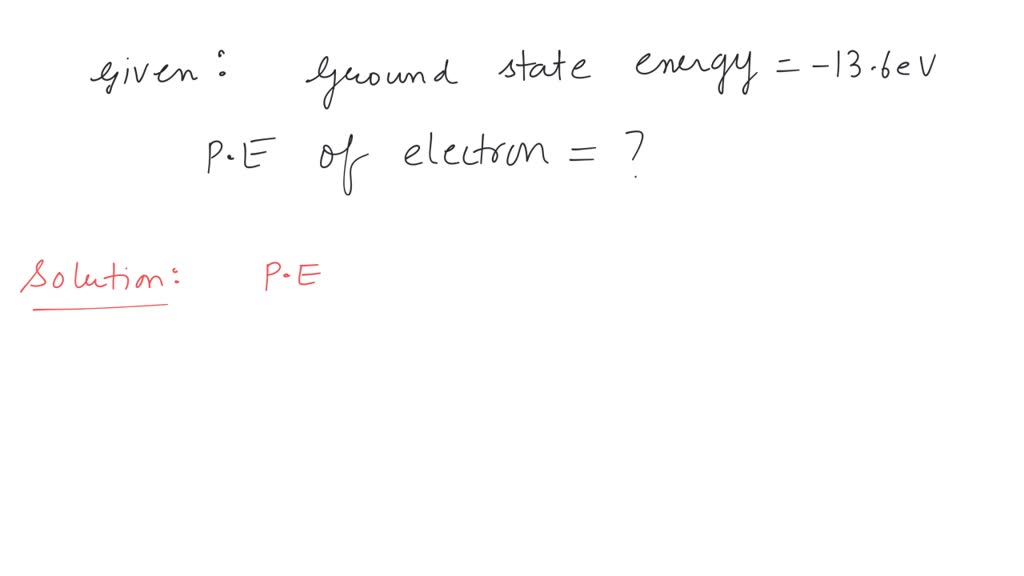 Given : Ground state energy = -13.6eV
P.E of electron = ?
Solution: P.E